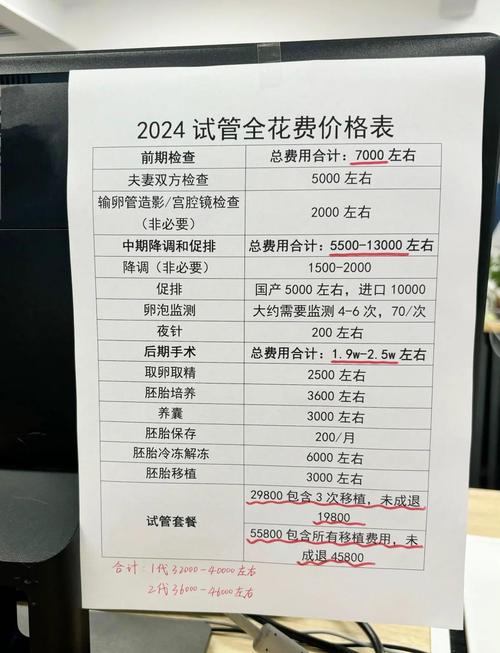 2024 试管全花费价格表
前期检查 总费用合计：7000 左右
夫妻双方检查 5000 左右
输卵管造影/宫腔镜检查
（非必要） 2000 左右
中期降调和促排 总费用合计：5500-13000 左右
降调（非必要） 1500-2000
促排 国产 5000 左右，进口 10000
卵泡监测 大约需要监测 4-6 次，70/次
夜针 200 左右
后期手术 总费用合计：1.9w-2.5w 左右
取卵取精 2500 左右
胚胎培养 3600 左右
养囊 3000 左右
胚胎保存 200/月
胚胎冷冻解冻 6000 左右
胚胎移植 3000 左右
试管套餐
29800 包含 3 次移植，未成退
19800
55800 包含所有移植费用，未
成退 45800
合计：1代 32000-40000左右
2代 36000-46000左右